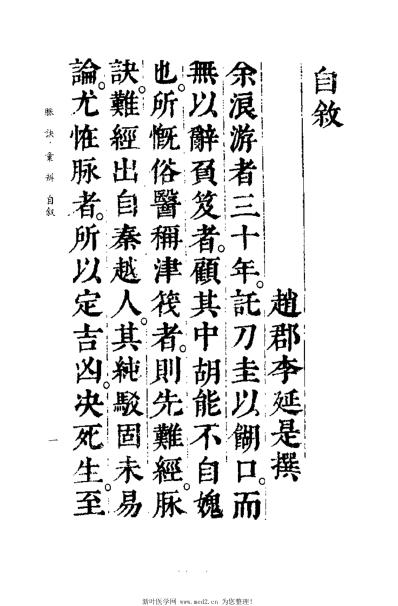 自敘
趙郡李延是撰
余浪游者三十年。託刀圭以餬口。而
無以辭負笈者。顧其中胡能不自媿
也。所慨俗醫稱津筏者。則先難經脉
訣。難經出自秦越人。其純駁固未易
論。尤恠脉者。所以定吉凶。決死生。至
脉訣·彙辨 自敘
一
新叶医学网 www.med2.cn 为您整理！